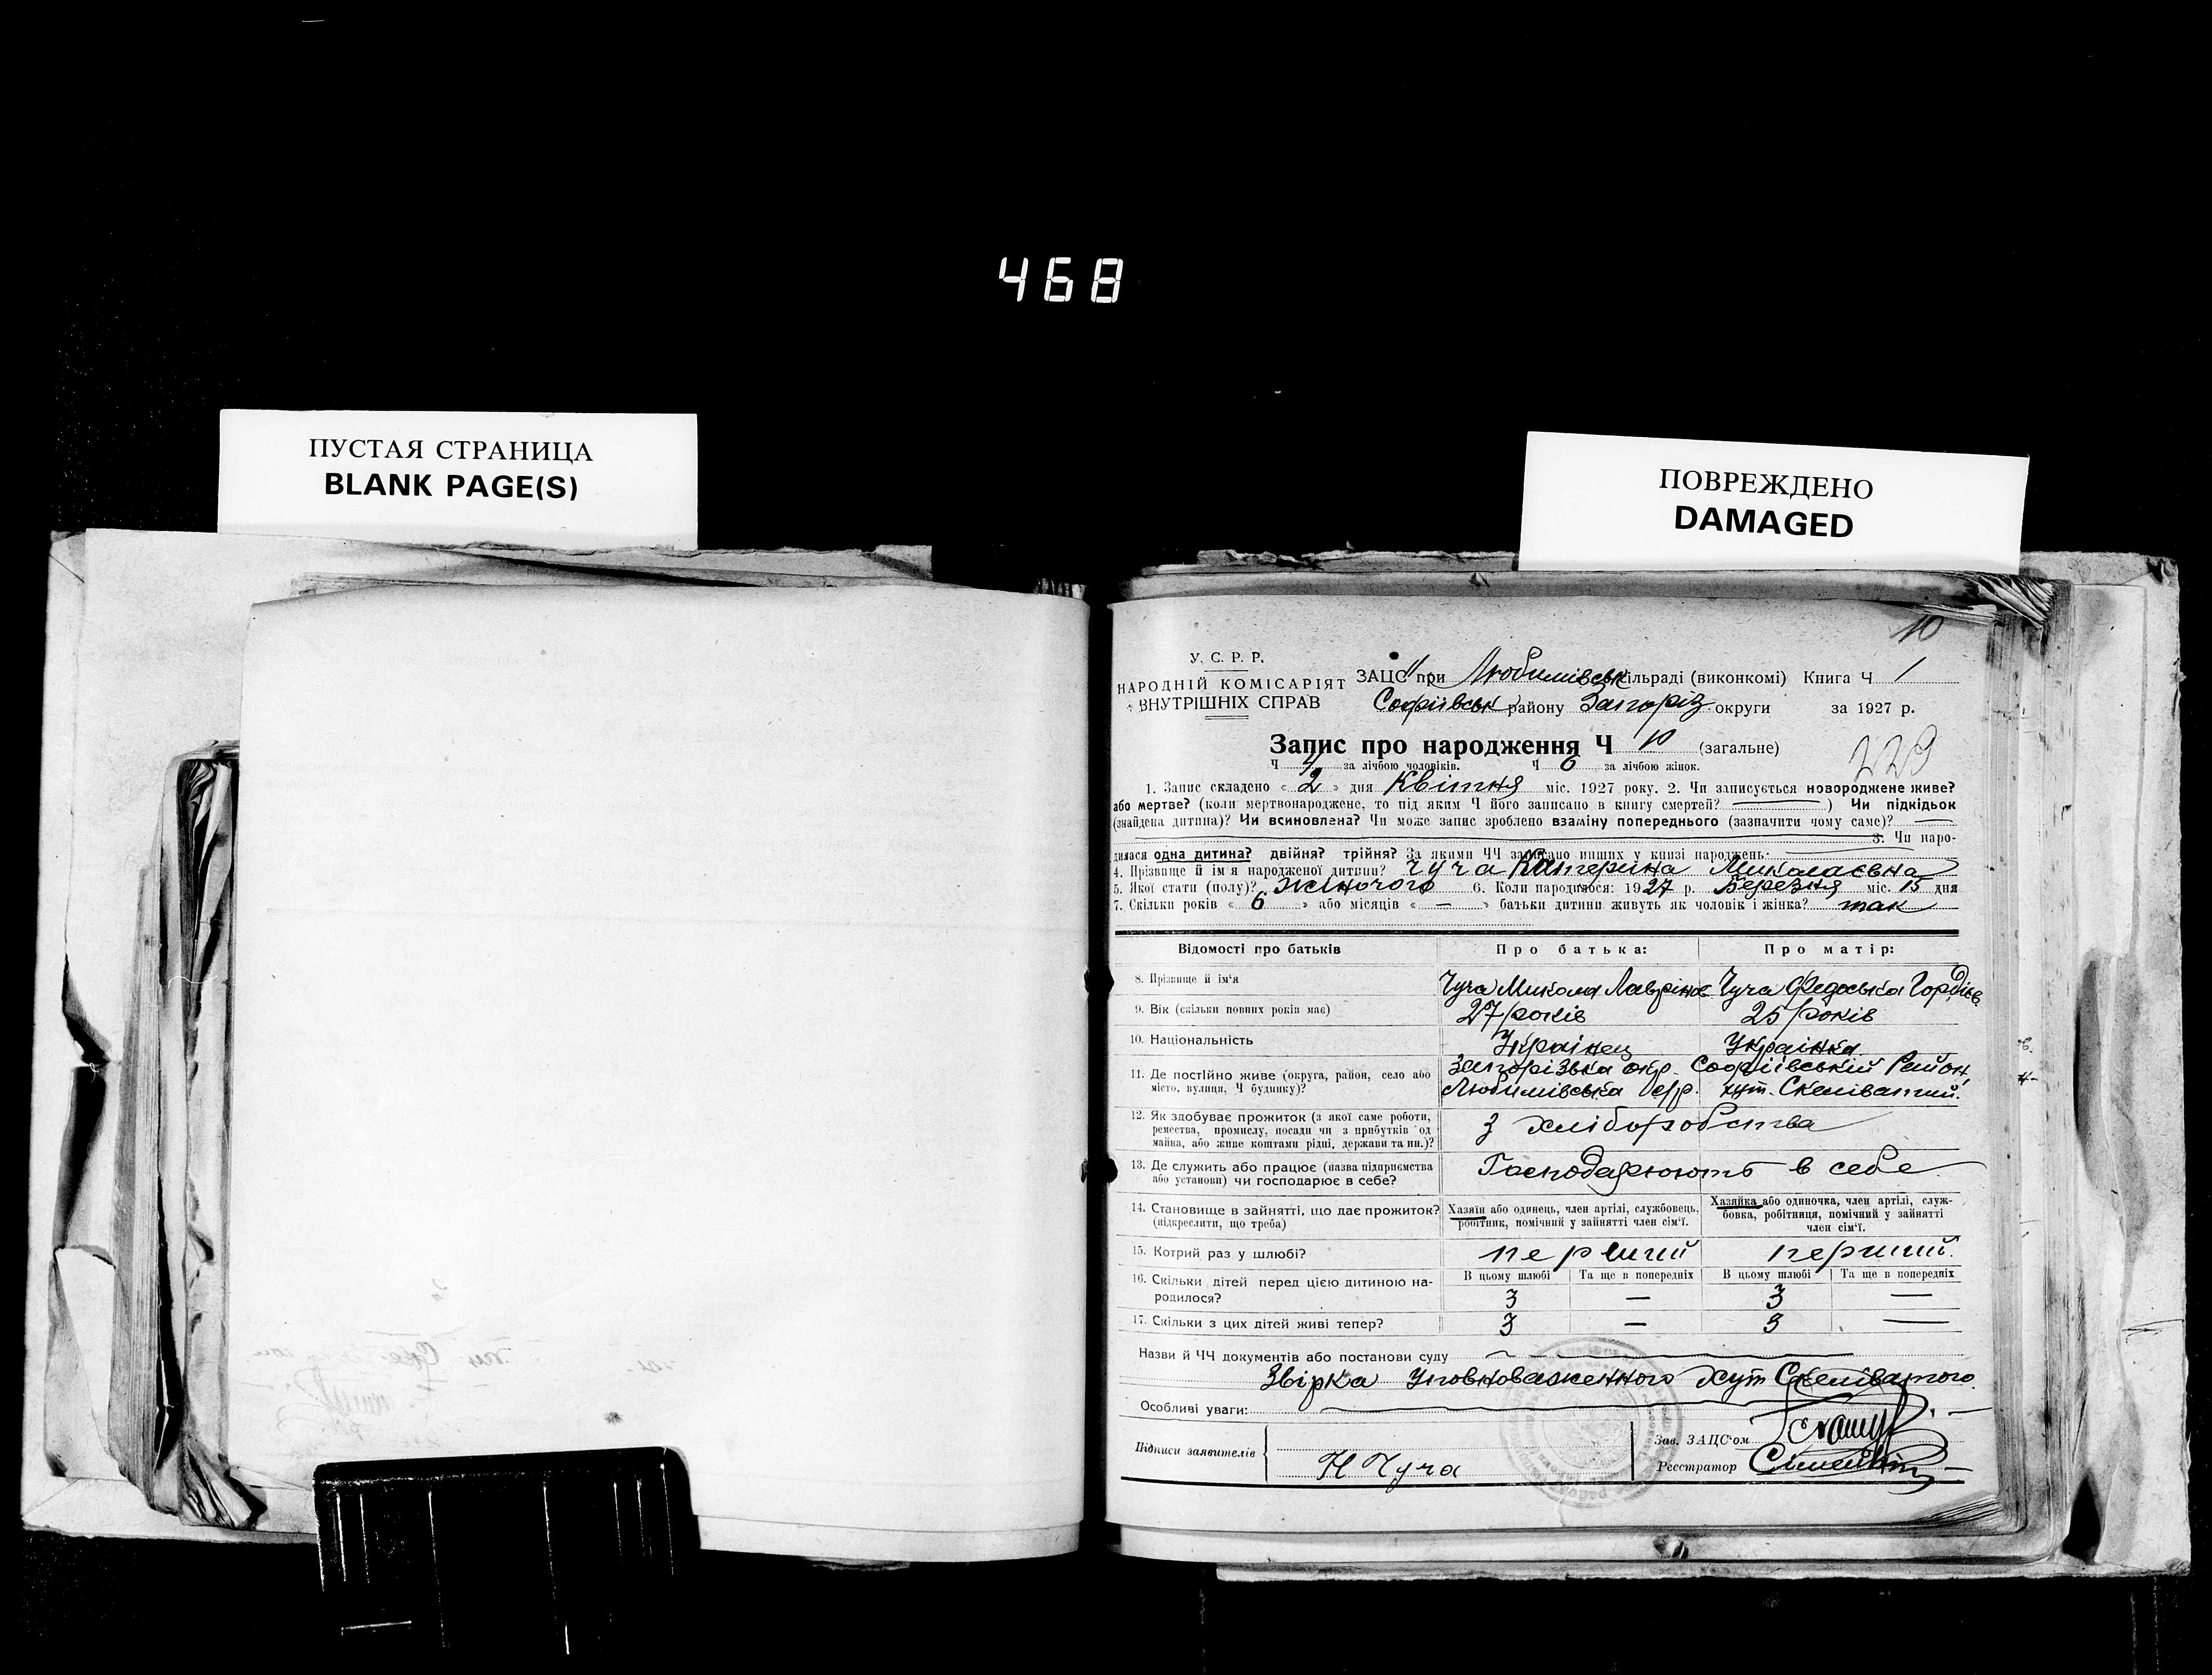 468
ПУСТАЯ СТРАНИЦА
BLANK PAGE(S)
ПОВРЕЖДЕНО
DAMAGED
10
У. С. Р. Р.
НАРОДНІЙ КОМІСАРІЯТ
ВНУТРІШНІХ СПРАВ
ЗАЦС при Любимівськ сільраді (виконкомі) Книга Ч 1
Софіївськ району Запоріз округи за 1927 р.
Запис про народження Ч 10 (загальне)
229
Ч 4 за лічбою чоловіків. Ч 6 за лічбою жінок.
1. Запис складено « 2 » дня Квітня міс. 1927 року. 2. Чи записується новороджене живе?
або мертве? (коли мертвонароджене, то під яким Ч його записано в книгу смертей? — ) Чи підкідьок
(знайдена дитина)? Чи всиновлена? Чи може запис зроблено взаміну попереднього (зазначити чому саме)? —
3. Чи наро-
дилася одна дитина? двійня? трійня? За якими ЧЧ записано инших у книзі народжень:
4. Прізвище й ім'я народженої дитини? Чуча Катерина Миколаєвна
5. Якої стати (полу)? жіночого 6. Коли народилося: 1927 р. Березня міс. 15 дня
7. Скільки років « 6 » або місяців « — » батьки дитини живуть як чоловік і жінка? так
Відомості про батьків Про батька: Про матір:
8. Прізвище й ім'я Чуча Микола Лаврінов Чуча Федоська Гордієв
9. Вік (скільки повних років має) 27 років 25 років
10. Національність Українец Українка
11. Де постійно живе (округа, район, село або Запорізька окр. Софіївській Район,
місто, вулиця, Ч будинку)? Любимівська с/р. хут. Скеліватий.
12. Як здобуває прожиток (з якої саме роботи,
ремества, промислу, посади чи з прибутків од з хліборобства
майна, або живе коштами рідні, держави та ин.)?
13. Де служить або працює (назва підприємства Господарюють в себе
або установи) чи господарює в себе?
14. Становище в зайнятті, що дає прожиток? Хазяїн або одинець, член артілі, службовець, Хазяйка або одиночка, член артілі, служ-
(підкреслити, що треба) робітник, помічний у зайнятті член сім'ї. бовка, робітниця, помічний у зайнятті
член сім'ї.
15. Котрий раз у шлюбі? перший перший.
16. Скільки дітей перед цією дитиною на- В цьому шлюбі Та ще в попередніх В цьому шлюбі Та ще в попередніх
родилося? 3 — 3 —
17. Скільки з цих дітей живі тепер? 3 — 3 —
Назви й ЧЧ документів або постанови суду
Звірка Уповноваженного хут Скеліватого
Особливі уваги:
Підписи заявителів Зав. ЗАЦС'ом
Н Чуча Реєстратор